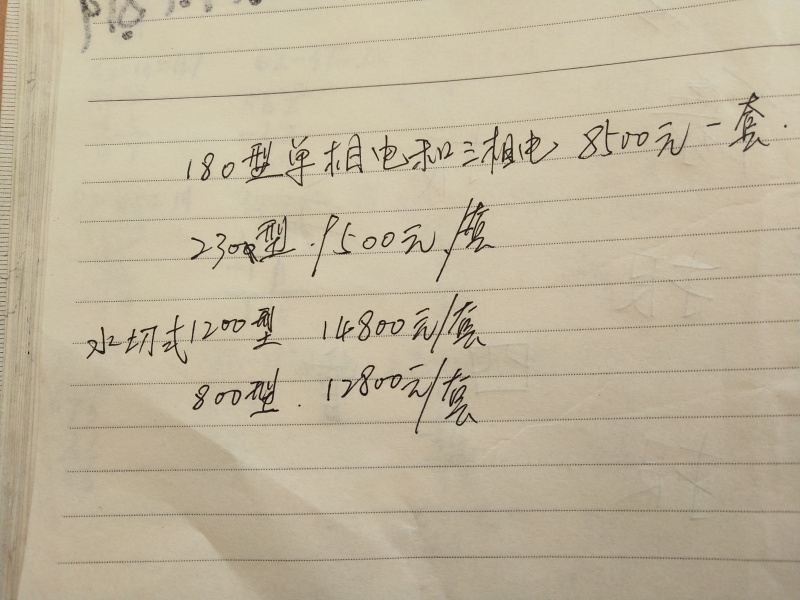 180型单相电和三相电 8500元一套.
型. 9500元/套
水切式1200型 14800元/套
800型. 12800元/套